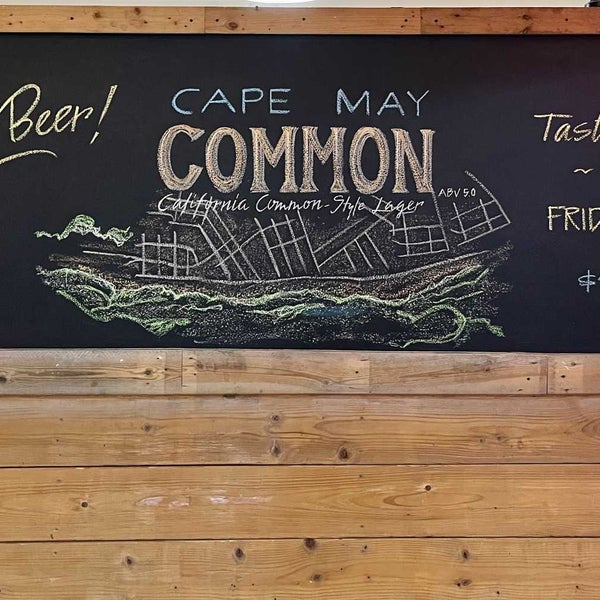 Beer!
CAPE MAY
COMMON
California Common-Style Lager
ABV 5.0
~
FRID
$